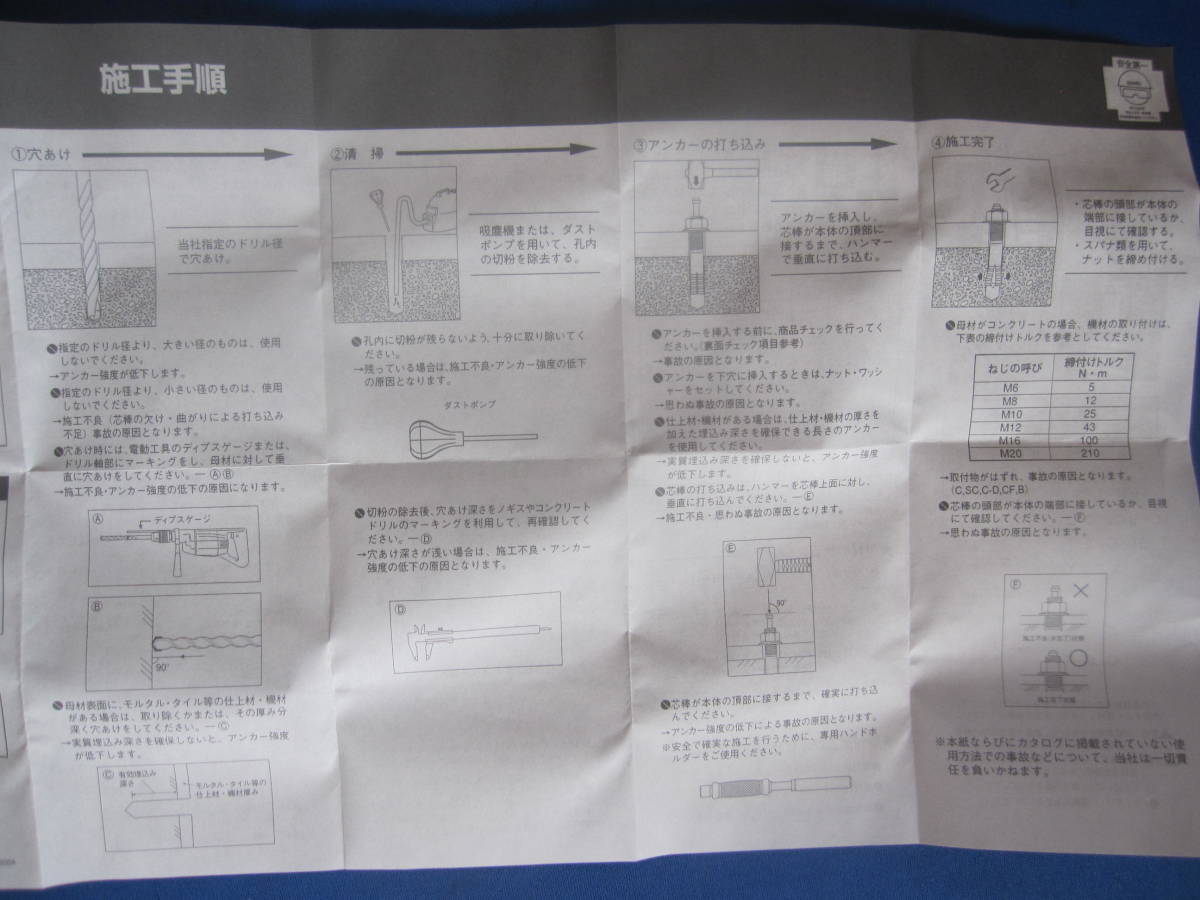 施工手順
安全第一
①穴あけ
当社指定のドリル径
で穴あけ。
指定のドリル径より、大きい径のものは、使用
しないでください。
→アンカー強度が低下します。
指定のドリル径より、小さい径のものは、使用
しないでください。
→施工不良（芯棒の欠け・曲がりによる打ち込み
不足）事故の原因となります。
穴あけ時には、電動工具のディプスゲージまたは、
ドリル軸部にマーキングをし、母材に対して垂
直に穴あけをしてください。―ⒶⒷ
→施工不良・アンカー強度の低下の原因になります。
Ⓐ
ディプスゲージ
Ⓑ
90°
母材表面に、モルタル・タイル等の仕上材・機材
がある場合は、取り除くかまたは、その厚み分
深く穴あけをしてください。―Ⓒ
→実質埋込み深さを確保しないと、アンカー強度
が低下します。
Ⓒ
有効埋込み
深さ
モルタル・タイル等の
仕上材・機材厚み
②清 掃
吸塵機または、ダスト
ポンプを用いて、孔内
の切粉を除去する。
孔内に切粉が残らないよう、十分に取り除いてく
ださい。
→残っている場合は、施工不良・アンカー強度の低下
の原因となります。
ダストポンプ
切粉の除去後、穴あけ深さをノギスやコンクリート
ドリルのマーキングを利用して、再確認してく
ださい。―Ⓓ
→穴あけ深さが浅い場合は、施工不良・アンカー
強度の低下の原因となります。
Ⓓ
③アンカーの打ち込み
アンカーを挿入し、
芯棒が本体の頂部に
接するまで、ハンマー
で垂直に打ち込む。
アンカーを挿入する前に、商品チェックを行ってく
ださい。（裏面チェック項目参考）
→事故の原因となります。
アンカーを下穴に挿入するときは、ナット・ワッシ
ャーをセットしてください。
→思わぬ事故の原因となります。
仕上材・機材がある場合は、仕上材・機材の厚さを
加えた埋込み深さを確保できる長さのアンカー
を使用してください。
→実質埋込み深さを確保しないと、アンカー強度
が低下します。
芯棒の打ち込みは、ハンマーを芯棒上面に対し、
垂直に打ち込んでください。―Ⓔ
→施工不良・思わぬ事故の原因となります。
Ⓔ
90°
芯棒が本体の頂部に接するまで、確実に打ち込
んでください。
→アンカー強度の低下による事故の原因となります。
※安全で確実な施工を行うために、専用ハンドホ
ルダーをご使用ください。
④施工完了
・芯棒の頭部が本体の
端部に接しているか、
目視にて確認する。
・スパナ類を用いて、
ナットを締め付ける。
母材がコンクリートの場合、機材の取り付けは、
下表の締付けトルクを参考としてください。
ねじの呼び 締付けトルク
N・m
M6 5
M8 12
M10 25
M12 43
M16 100
M20 210
→取付物がはずれ、事故の原因となります。
(C,SC,C-D,CF,B)
芯棒の頭部が本体の端部に接しているか、目視
にて確認してください。―Ⓕ
→思わぬ事故の原因となります。
Ⓕ
施工不良(未完了)状態
施工完了状態
※本紙ならびにカタログに掲載されていない使
用方法での事故などについて、当社は一切責
任を負いかねます。